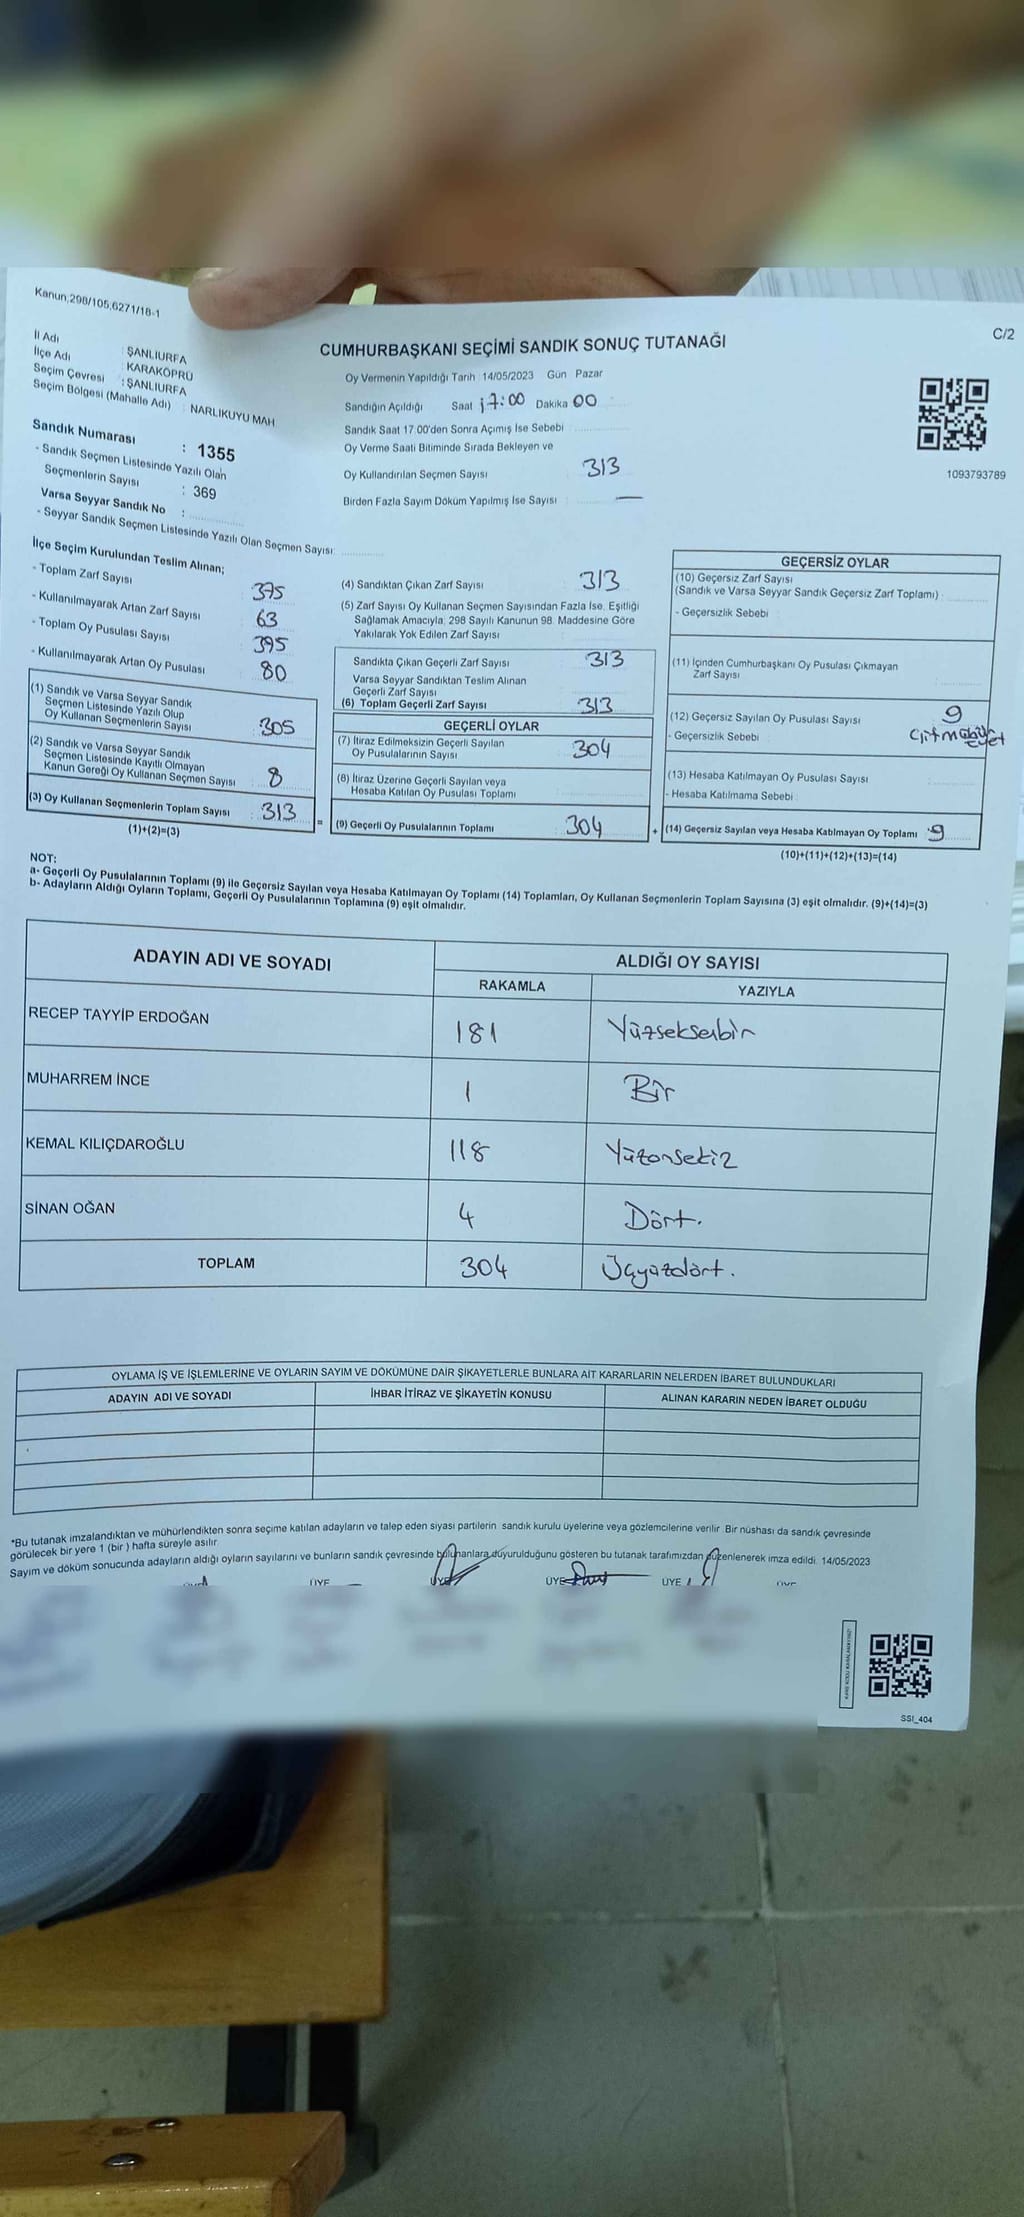 Kanun;298/105,6271/18-1
C/2
CUMHURBAŞKANI SEÇİMİ SANDIK SONUÇ TUTANAĞI
İl Adı : ŞANLIURFA
İlçe Adı : KARAKÖPRÜ
Seçim Çevresi : ŞANLIURFA
Seçim Bölgesi (Mahalle Adı) : NARLIKUYU MAH
Sandık Numarası : 1355
- Sandık Seçmen Listesinde Yazılı Olan
Seçmenlerin Sayısı : 369
Varsa Seyyar Sandık No :
- Seyyar Sandık Seçmen Listesinde Yazılı Olan Seçmen Sayısı:
Oy Vermenin Yapıldığı Tarih : 14/05/2023 Gün : Pazar
Sandığın Açıldığı Saat 17:00 Dakika 00
Sandık Saat 17:00'den Sonra Açımış İse Sebebi :
Oy Verme Saati Bitiminde Sırada Bekleyen ve
Oy Kullandırılan Seçmen Sayısı : 313
Birden Fazla Sayım Döküm Yapılmış İse Sayısı : —
1093793789
İlçe Seçim Kurulundan Teslim Alınan;
- Toplam Zarf Sayısı : 375
- Kullanılmayarak Artan Zarf Sayısı : 63
- Toplam Oy Pusulası Sayısı : 395
- Kullanılmayarak Artan Oy Pusulası : 80
(1) Sandık ve Varsa Seyyar Sandık
Seçmen Listesinde Yazılı Olup
Oy Kullanan Seçmenlerin Sayısı : 305
(2) Sandık ve Varsa Seyyar Sandık
Seçmen Listesinde Kayıtlı Olmayan
Kanun Gereği Oy Kullanan Seçmen Sayısı : 8
(3) Oy Kullanan Seçmenlerin Toplam Sayısı : 313
(1)+(2)=(3)
(4) Sandıktan Çıkan Zarf Sayısı : 313
(5) Zarf Sayısı Oy Kullanan Seçmen Sayısından Fazla İse, Eşitliği
Sağlamak Amacıyla; 298 Sayılı Kanunun 98. Maddesine Göre
Yakılarak Yok Edilen Zarf Sayısı :
Sandıkta Çıkan Geçerli Zarf Sayısı : 313
Varsa Seyyar Sandıktan Teslim Alınan
Geçerli Zarf Sayısı :
(6) Toplam Geçerli Zarf Sayısı : 313
GEÇERLİ OYLAR
(7) İtiraz Edilmeksizin Geçerli Sayılan
Oy Pusulalarının Sayısı : 304
(8) İtiraz Üzerine Geçerli Sayılan veya
Hesaba Katılan Oy Pusulası Toplamı :
= (9) Geçerli Oy Pusulalarının Toplamı : 304
GEÇERSİZ OYLAR
(10) Geçersiz Zarf Sayısı
(Sandık ve Varsa Seyyar Sandık Geçersiz Zarf Toplamı) :
- Geçersizlik Sebebi :
(11) İçinden Cumhurbaşkanı Oy Pusulası Çıkmayan
Zarf Sayısı :
(12) Geçersiz Sayılan Oy Pusulası Sayısı : 9
- Geçersizlik Sebebi :
(13) Hesaba Katılmayan Oy Pusulası Sayısı :
- Hesaba Katılmama Sebebi :
+ (14) Geçersiz Sayılan veya Hesaba Katılmayan Oy Toplamı : 9
(10)+(11)+(12)+(13)=(14)
NOT:
a- Geçerli Oy Pusulalarının Toplamı (9) ile Geçersiz Sayılan veya Hesaba Katılmayan Oy Toplamı (14) Toplamları, Oy Kullanan Seçmenlerin Toplam Sayısına (3) eşit olmalıdır. (9)+(14)=(3)
b- Adayların Aldığı Oyların Toplamı, Geçerli Oy Pusulalarının Toplamına (9) eşit olmalıdır.
ADAYIN ADI VE SOYADI ALDIĞI OY SAYISI
RAKAMLA YAZIYLA
RECEP TAYYİP ERDOĞAN 181 Yüzseksenbir
MUHARREM İNCE 1 Bir
KEMAL KILIÇDAROĞLU 118 Yüzonsekiz
SİNAN OĞAN 4 Dört.
TOPLAM 304 Üçyüzdört.
OYLAMA İŞ VE İŞLEMLERİNE VE OYLARIN SAYIM VE DÖKÜMÜNE DAİR ŞİKAYETLERLE BUNLARA AİT KARARLARIN NELERDEN İBARET BULUNDUKLARI
ADAYIN ADI VE SOYADI İHBAR İTİRAZ VE ŞİKAYETİN KONUSU ALINAN KARARIN NEDEN İBARET OLDUĞU
*Bu tutanak imzalandıktan ve mühürlendikten sonra seçime katılan adayların ve talep eden siyasi partilerin sandık kurulu üyelerine veya gözlemcilerine verilir. Bir nüshası da sandık çevresinde
görülecek bir yere 1 (bir ) hafta süreyle asılır.
Sayım ve döküm sonucunda adayların aldığı oyların sayılarını ve bunların sandık çevresinde bulunanlara duyurulduğunu gösteren bu tutanak tarafımızdan düzenlenerek imza edildi. 14/05/2023
ÜYE ÜYE ÜYE ÜYE ÜYE ÜYE
SSI_404